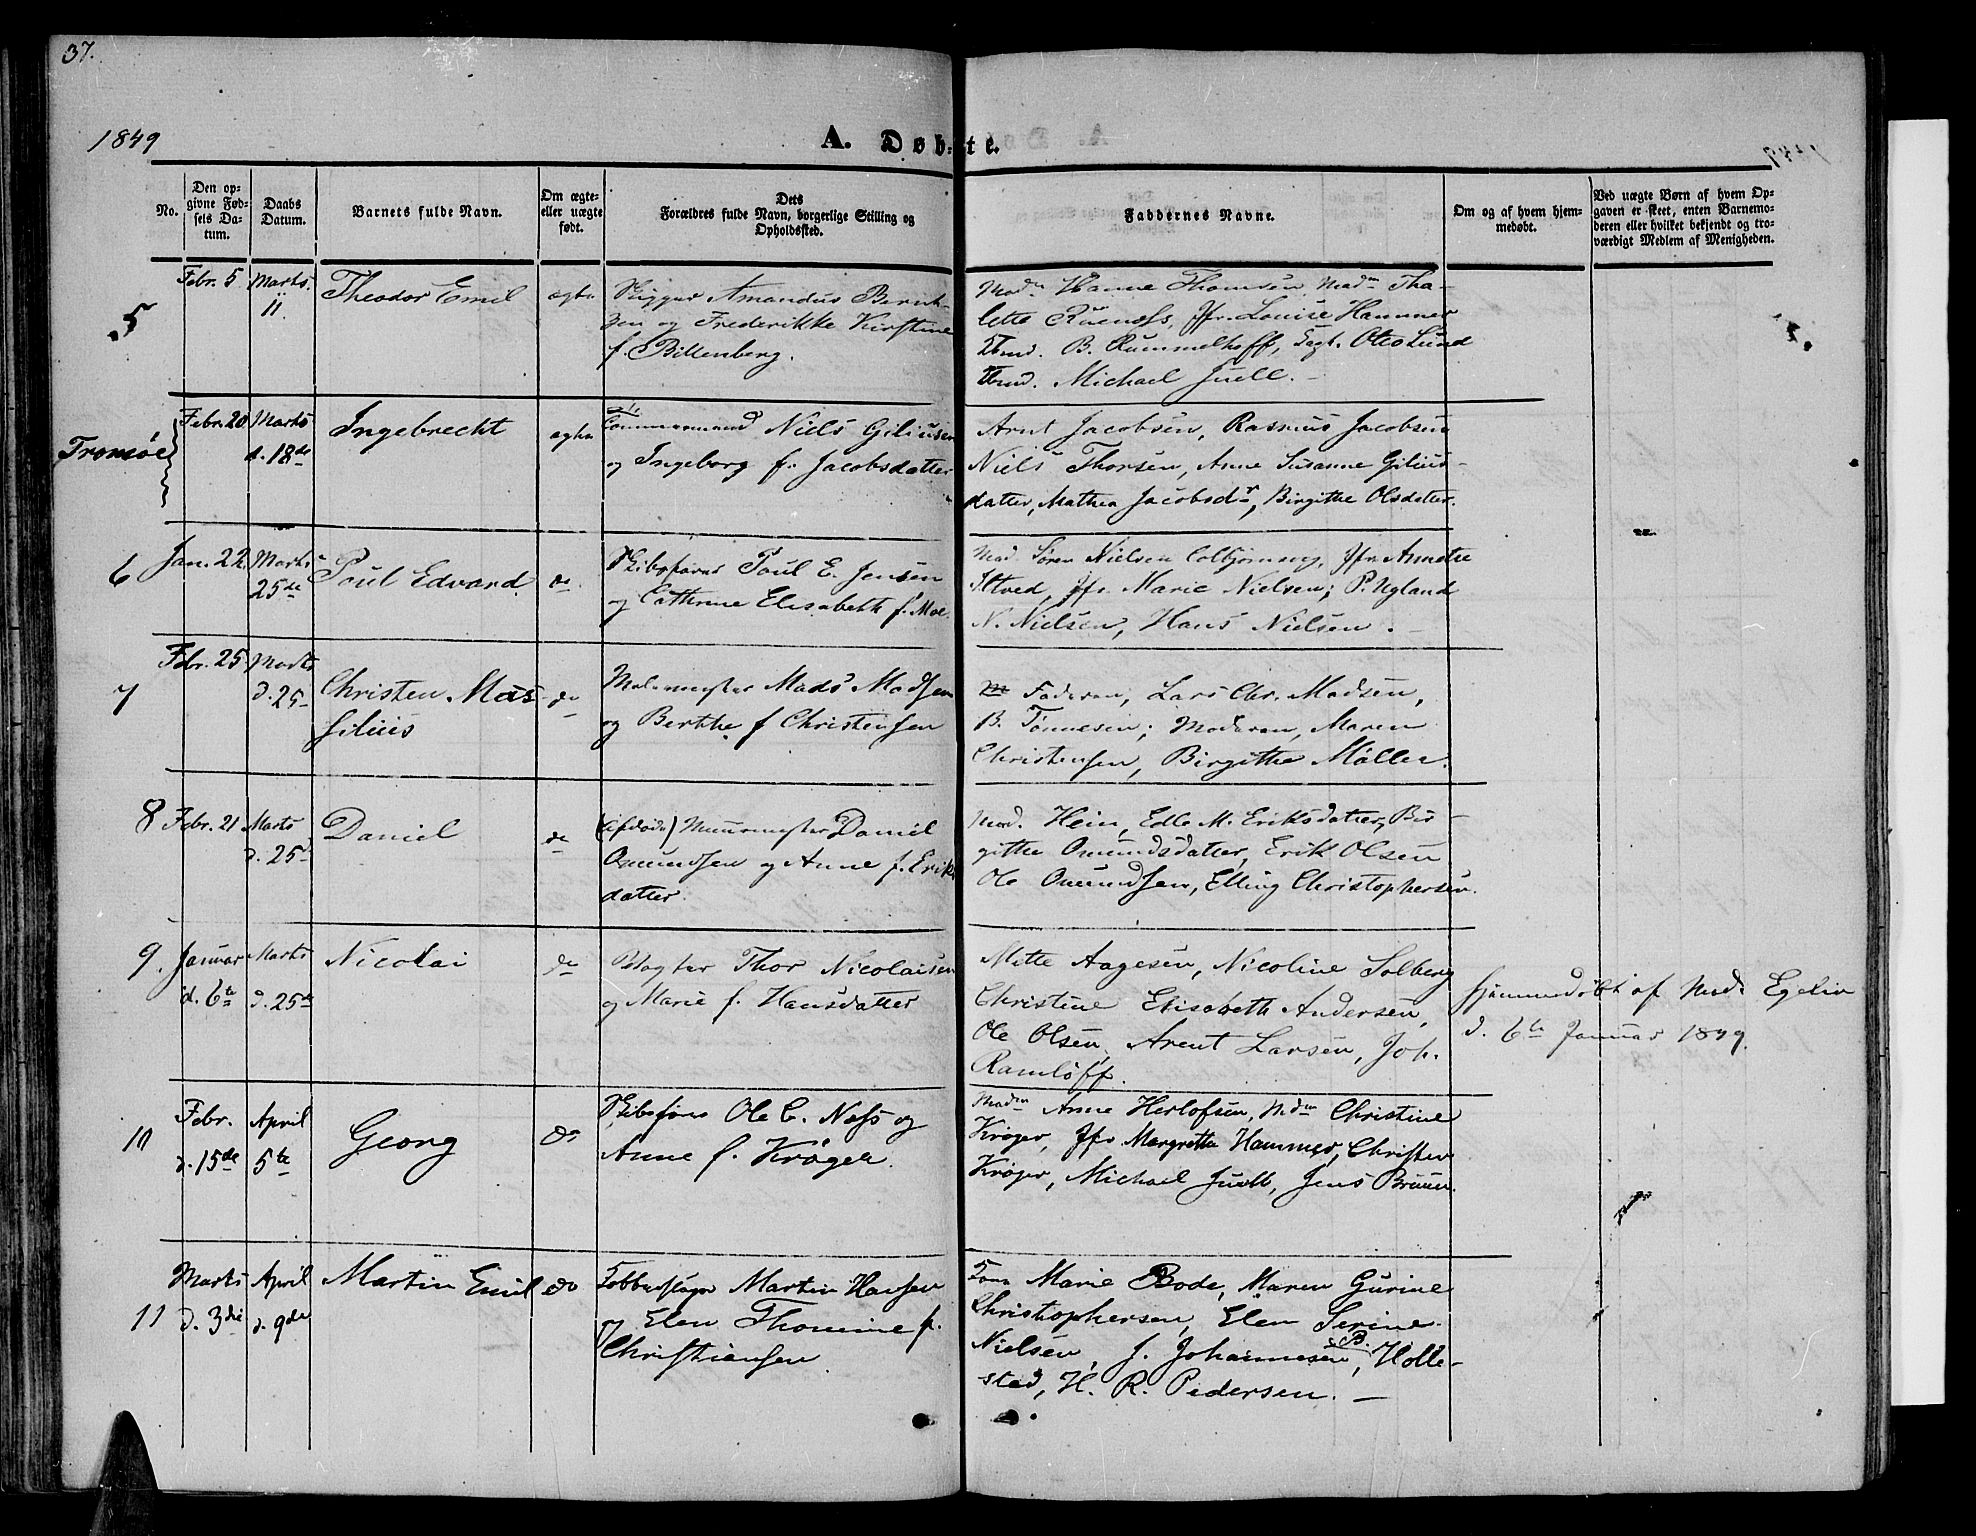 37.
1849
A. Døbte.
No.
Den op-
givne Fød-
sels Da-
tum.
Daabs
Datum.
Barnets fulde Navn.
Om ægte-
eller uægte
født.
Dets
Forældres fulde Navn, borgerlige Stilling og
Opholdssted.
Faddernes Navne.
Om og af hvem hjem-
medøbt.
Ved uægte Børn af hvem Op-
gaven er skeet, enten Barnemo-
deren eller hvilket bekjendt og tro-
værdigt Medlem af Menigheden.
5
Febr. 5
Marts
11.
Theodor Emil
ægte
Rigger Amandus Bernt-
zen og Frederikke Kirstine
f. Billenberg.
Madm Hanne Thomsen, Madm Tha-
lette Ruenæss, Jfr. Louise Hammer
B. Rummelhoff, Otto Lund
Michael Juell.
Tromsøe
Febr. 20
Marts
d. 18de
Ingebrecht
ægte
Tømmermand Niels Giliusen
og Ingeborg f. Jacobsdatter
Arnt Jacobsen, Rasmus Jacobsen
Niels Thorsen, Anne Susanne Gilius-
datter, Mathea Jacobsdr, Birgithe Olsdatter.
6
Jan. 22
Marts
25de
Poul Edvard.
do
Skibsfører Poul E. Jensen
og Cathrine Elisabeth f. Moe.
Mad. Søren Nielsen Colbjørnsvig, Jfr. Annette
Iltved, Jfr. Marie Nielsen; P. Ugland
N. Nielsen, Hans Nielsen.
7
Febr. 25
Marts
d. 25
Christen Mas-
silius
do
Malermester Mads Madsen
og Berthe f Christensen
Faderen, Lars Chr. Madsen,
B. Tønnesen; Moderen, Maren
Christensen, Birgithe Møller.
8
Febr. 21
Marts
d. 25
Daniel
do
(afdøde) Muurmester Daniel
Omundsen og Anne f. Eriks
datter.
Mad. Hein, Edle M. Eriksdatter, Bir-
githe Omundsdatter, Erik Olsen
Ole Omundsen, Elling Christophersen.
9.
Januar
d. 6te
Marts
d. 25de
Nicolai
do
Vægter Thor Nicolaisen
og Marie f. Hansdatter
Mitte Aagesen, Nicoline Solberg
Christine Elisabeth Andersen,
Ole Olsen, Arent Larsen, Joh.
Ramløff.
hjemmedøbt af Mad. Egelin
d. 6te Januar 1849.
10
Febr.
d. 15de
April
5te
Georg
do
Skibsfører Ole C. Næss og
Anne f. Krøger.
Madm Anne Herlofsen, Mdm Christine
Krøger, Jfr Margrethe Hammer, Christen
Krøger, Michael Juell, Jens Bruun.
11
Marts
d. 3die
April
d. 9de
Martin Emil
do
Martin Hansen
og Elen Thomine f.
Christiansen
Marie Bode, Maren Gurine
Christophersen, Elen Serine
Nielsen, J. Johannesen, B. Holle-
sted, H. R. Pedersen.